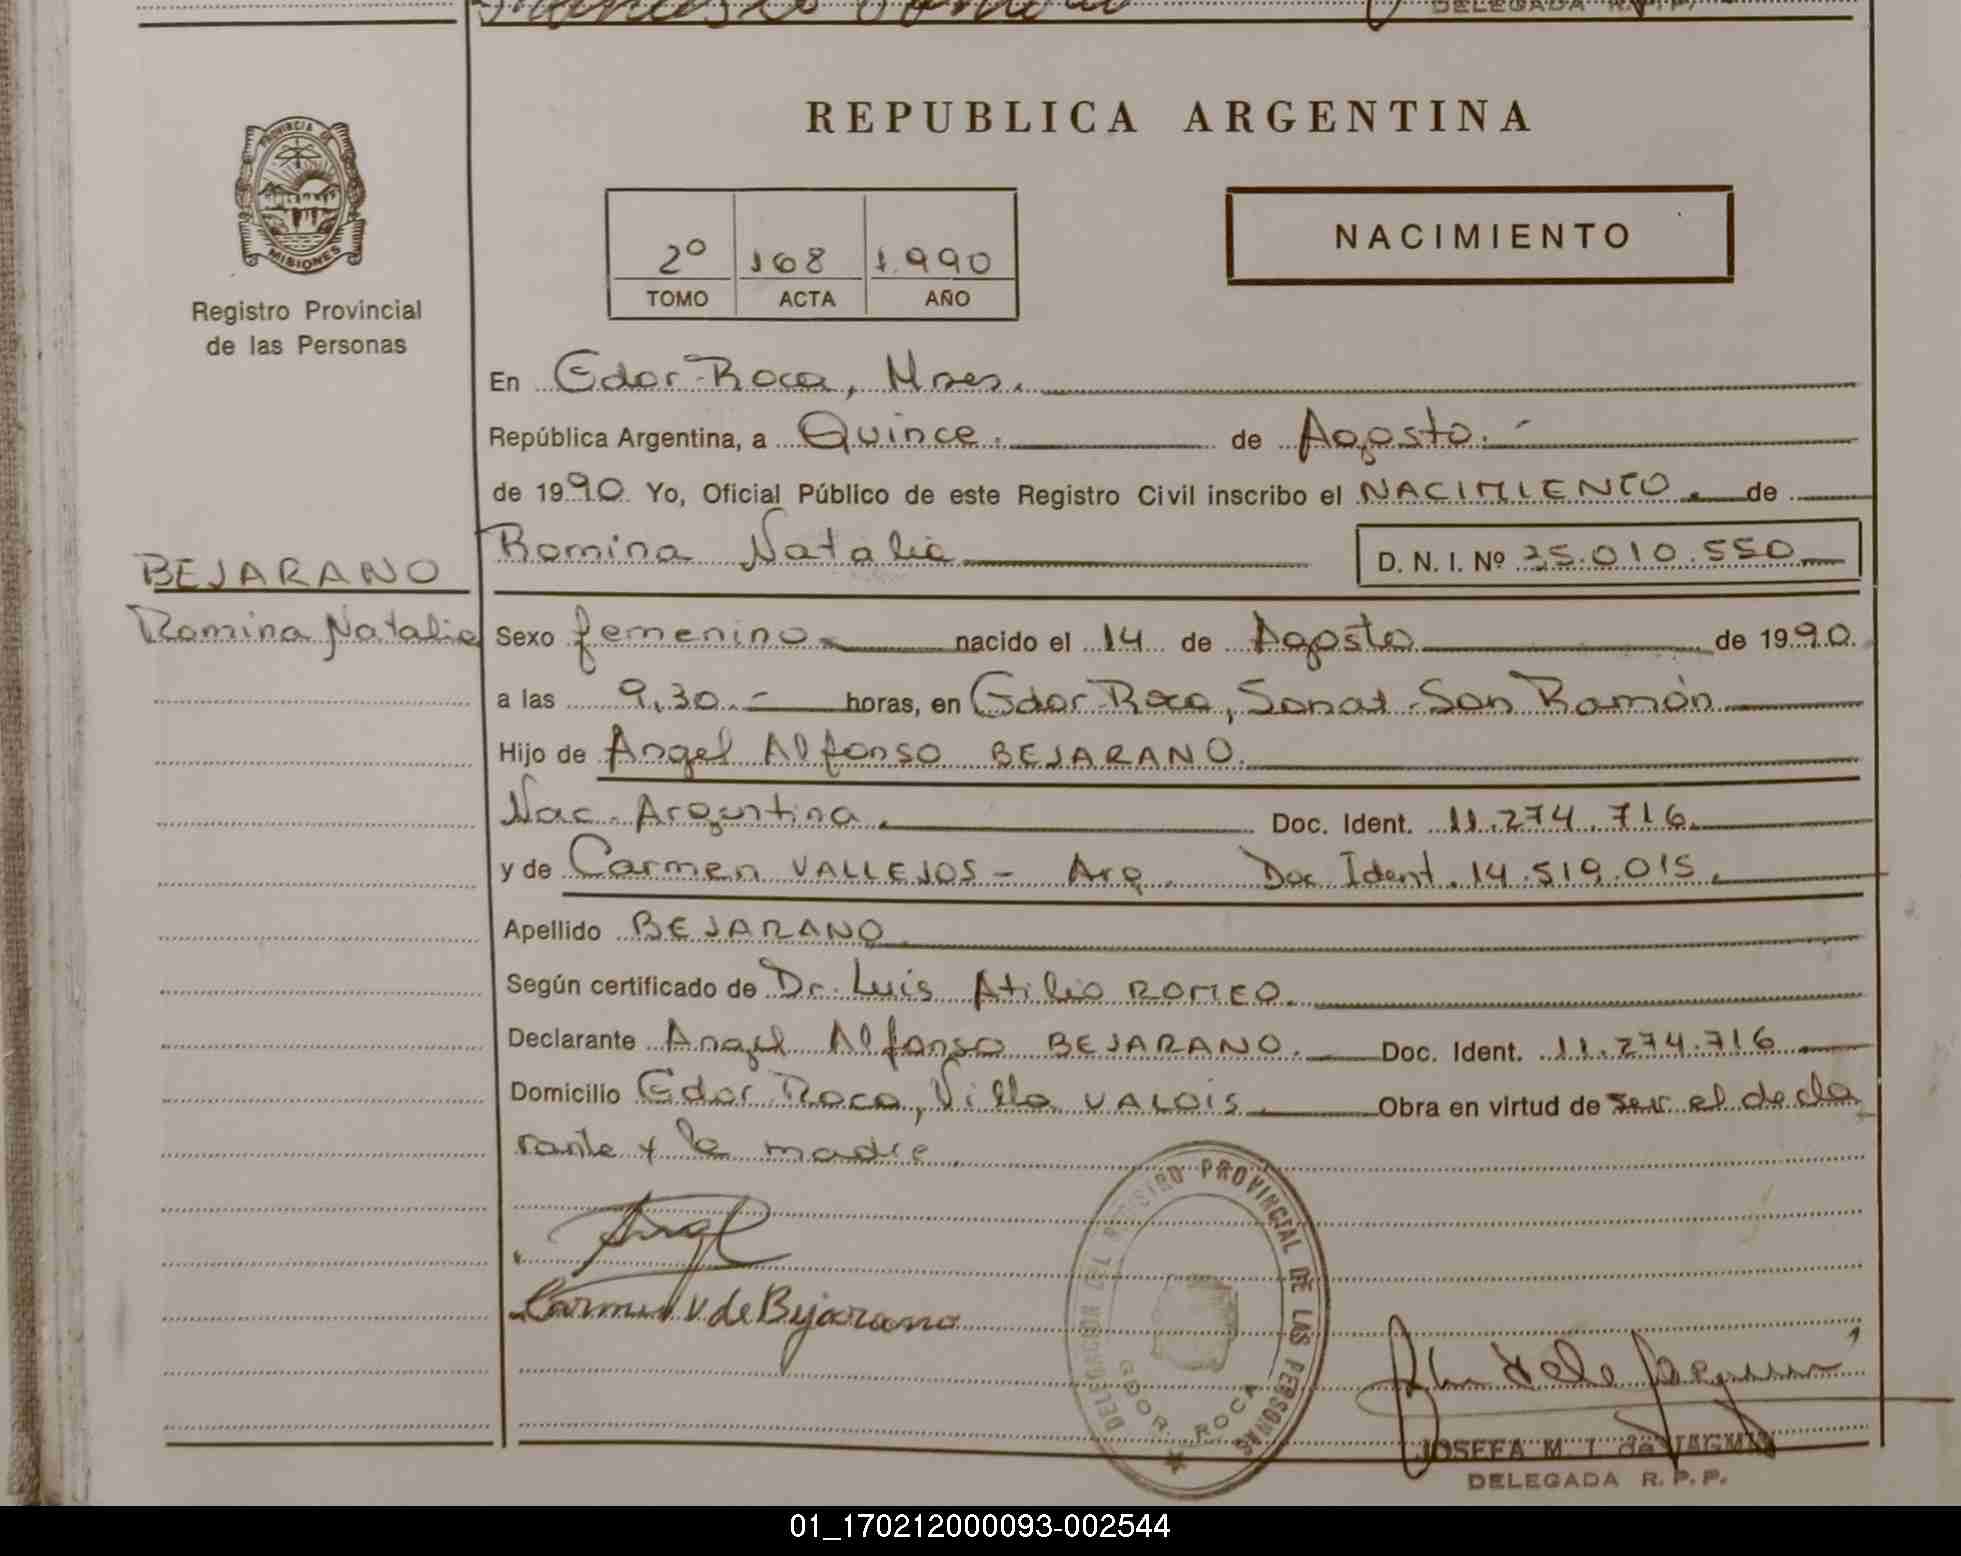 DELEGADA R.P.P.
PROVINCIA DE
MISIONES
Registro Provincial
de las Personas
REPUBLICA ARGENTINA
2º 168 1.990
TOMO ACTA AÑO
NACIMIENTO
En Gdor. Roca, Mnes.
República Argentina, a Quince. de Agosto.-
de 1990 Yo, Oficial Público de este Registro Civil inscribo el NACIMIENTO. de
Romina Natalia D. N. I. Nº 35.010.550
BEJARANO
Romina Natalia
Sexo femenino nacido el 14 de Agosto de 1990.
a las 9,30.- horas, en Gdor. Roca, Sanat. San Ramón
Hijo de Angel Alfonso BEJARANO.
Nac. Argentina. Doc. Ident. 11.274.716.
y de Carmen VALLEJOS - Arg. Doc Ident. 14.519.015.
Apellido BEJARANO
Según certificado de Dr. Luis Atilio ROMEO.
Declarante Angel Alfonso BEJARANO. Doc. Ident. 11.274.716
Domicilio Gdor. Roca, Villa VALOIS. Obra en virtud de ser el decla
rante y la madre.
Angel
Carmen V de Bejarano
DELEGACION DEL REGISTRO PROVINCIAL DE LAS PERSONAS
GDOR. ROCA
JOSEFA M. I. de JAGMIN
DELEGADA R. P. P.
01_170212000093-002544